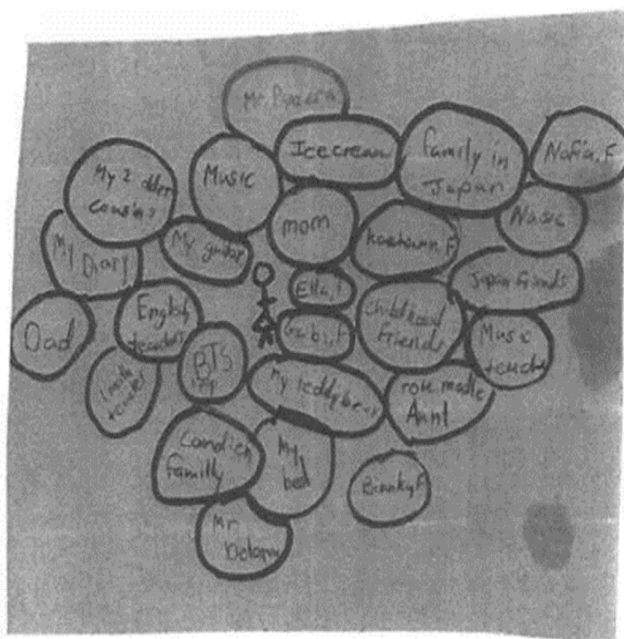 Mr.
Ice cream
family in
Japan
Nafia, F
My 2 older
cousins
Music
mom
Music
My Diary
My guitar
Ella, F
Japan friends
Dad
English
teacher
childhood
friends
Music
teacher
BTS
My teddy bear
role modle
Aunt
teacher
familly
My
bed
Mr